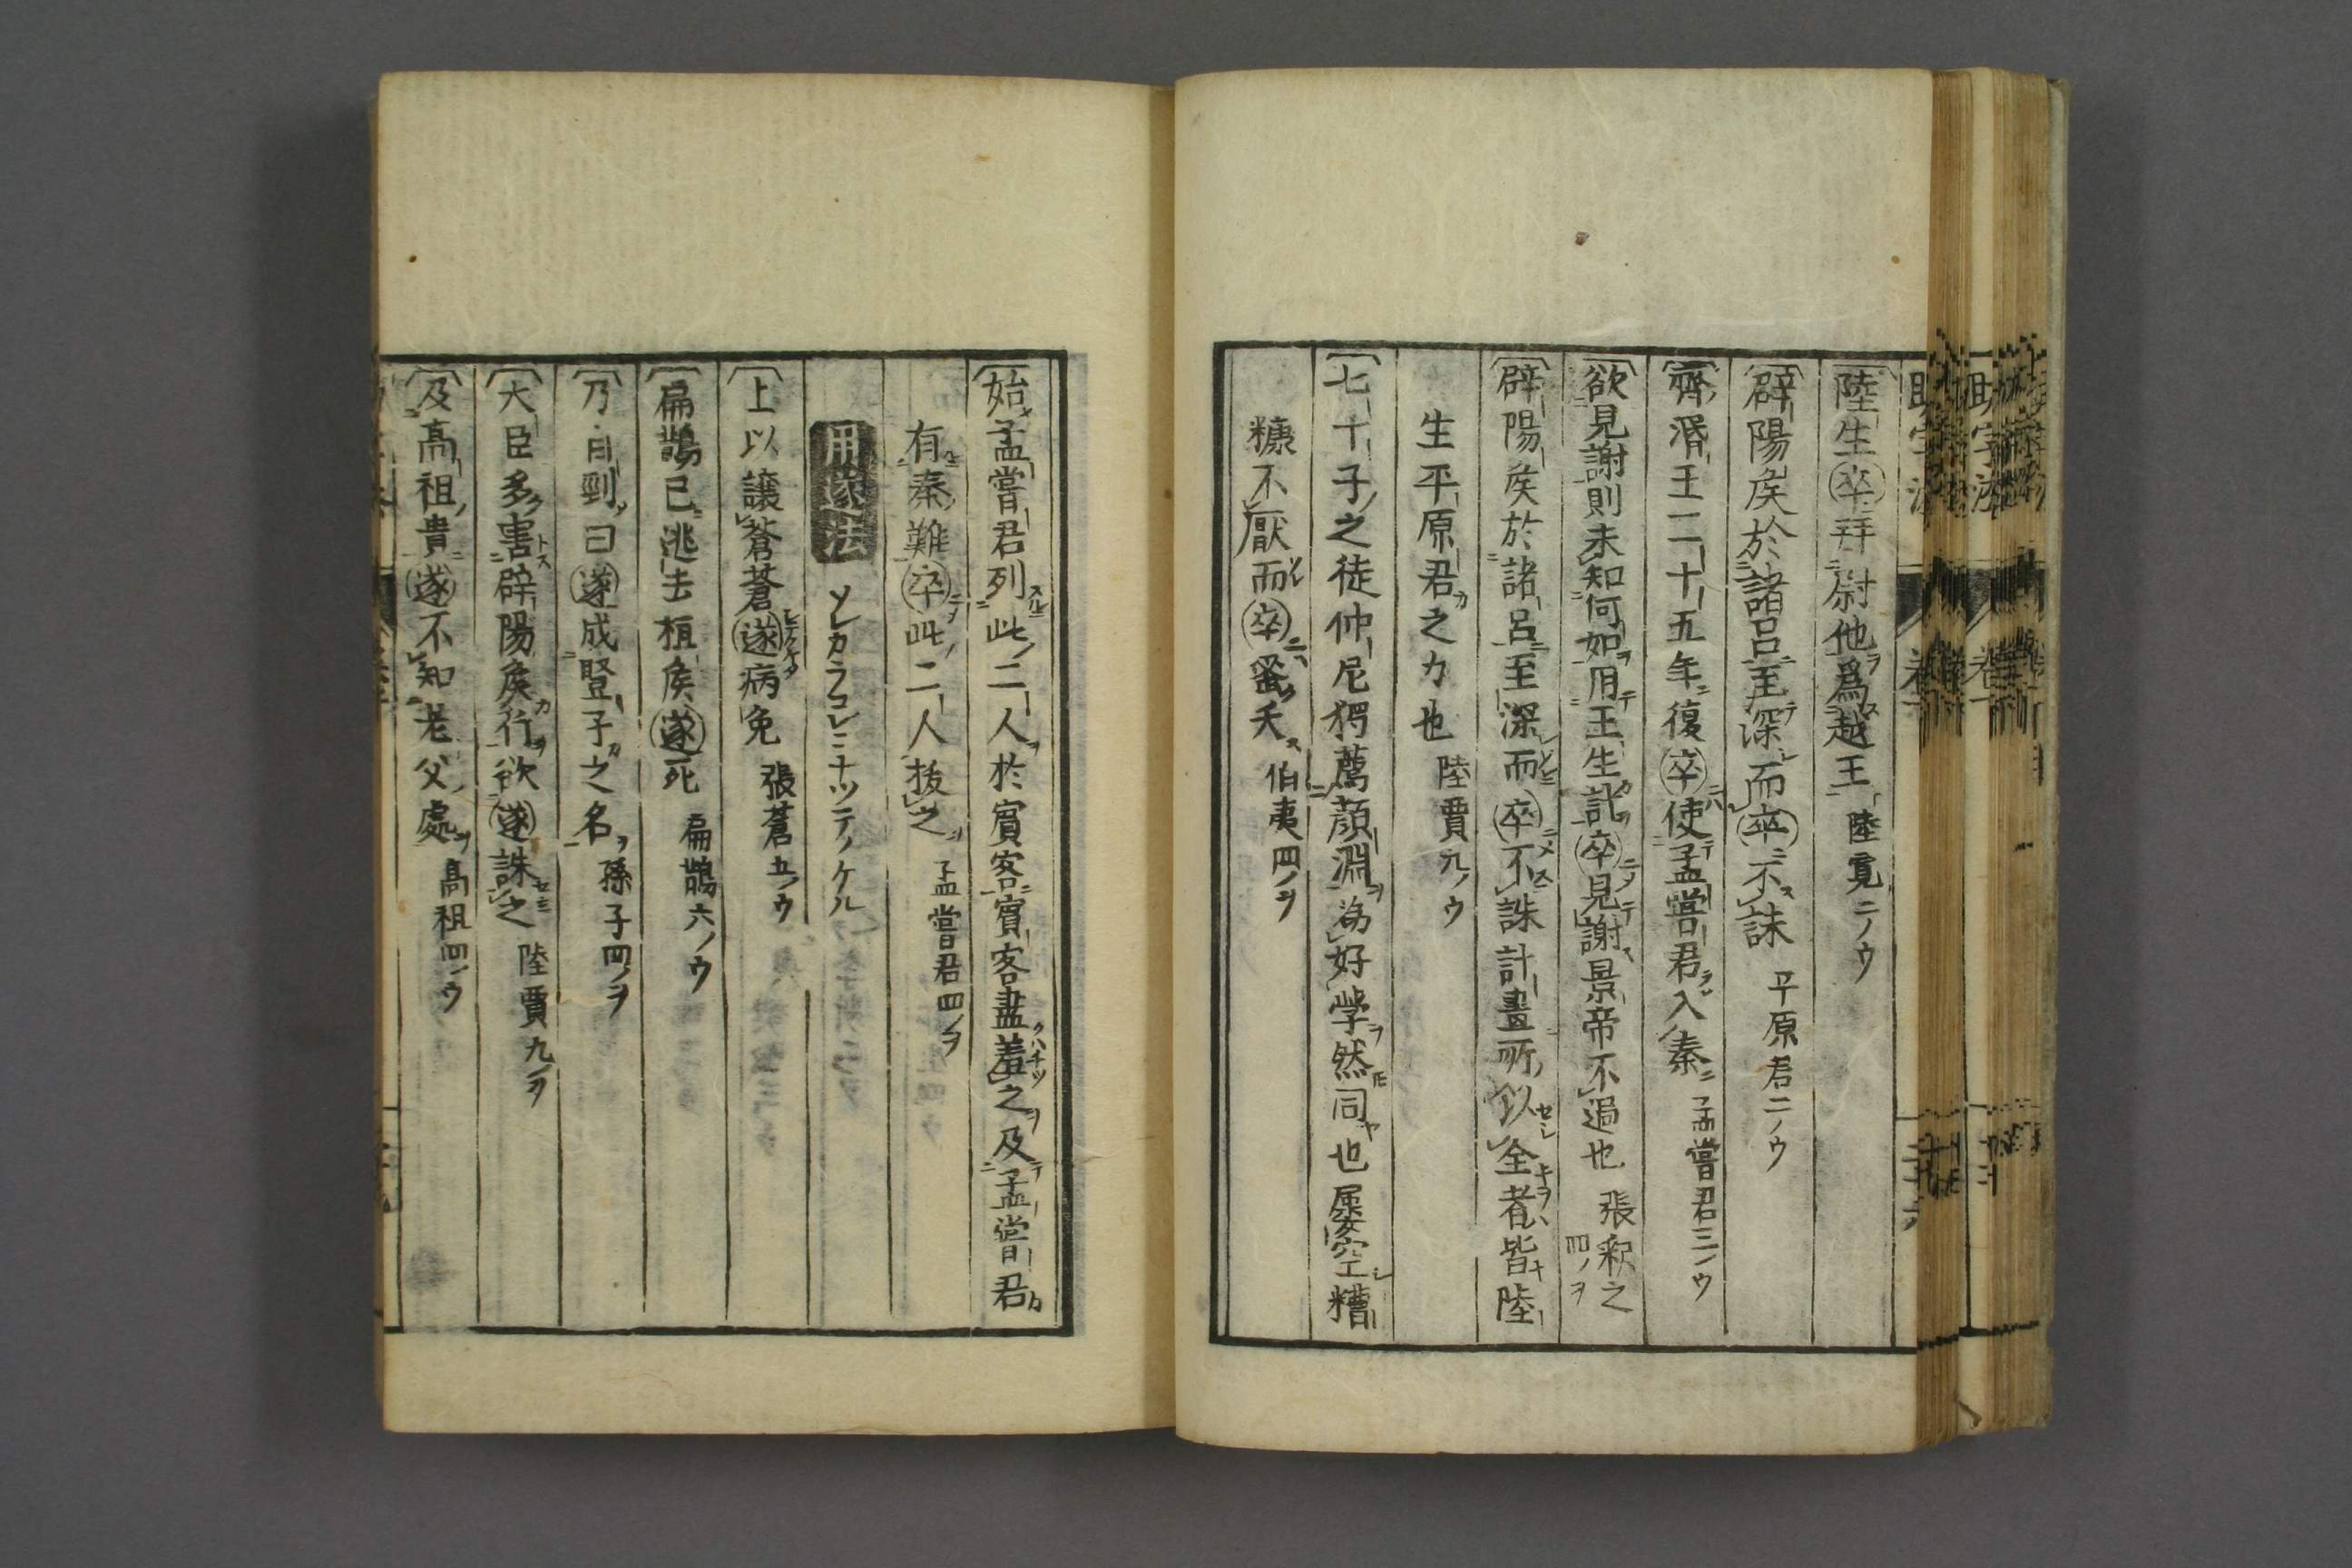 陸生卒拜尉他爲越王 陸賈二ノウ
辟陽矦於諸呂至深而卒不誅 平原君二ノウ
齊湣王二十五年復卒使孟嘗君入秦 孟嘗君三ノウ
欲見謝則未知何如用王生計卒見謝景帝不過也 張釈之四ノヲ
辟陽矦於諸呂至深而卒不誅計畫所以全者皆陸
生平原君之力也 陸賈九ノウ
七十子之徒仲尼獨薦顔淵為好学然同也屢空糟
糠不厭而卒蚤夭 伯夷四ノヲ
始孟嘗君列此二人於賓客賓客盡羞之及孟嘗君
有秦難卒此二人抜之 孟嘗君四ノヲ
用遂法 ソレカラコレニナツテノケル
上以譲蒼蒼遂病免 張蒼五ノウ
扁鵲已逃去桓矦遂死 扁鵲六ノウ
乃自剄曰遂成竪子之名 孫子四ノヲ
大臣多害辟陽矦行欲遂誅之 陸賈九ノヲ
及高祖貴遂不知老父處 高祖四ノウ